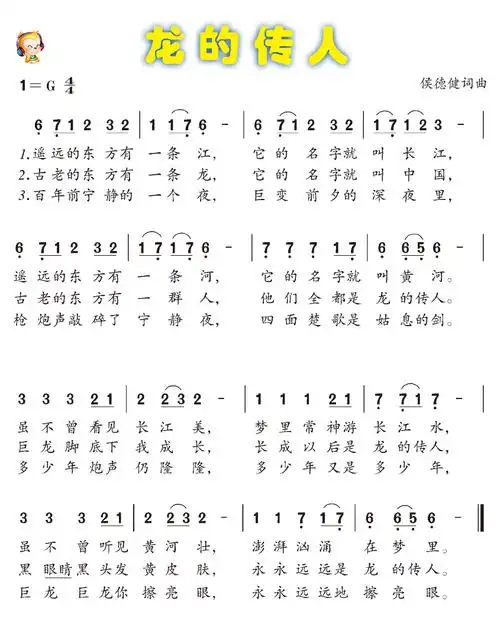 龙的传人
1=G 4/4
侯德健词曲
6 712 32 | 1 117 6 - | 6 712 32 | 17 123 - |
1.遥远的东方有 一条 江, 它的名字就 叫长江,
2.古老的东方有 一条 龙, 它的名字就 叫中国,
3.百年前宁静的 一个 夜, 巨变前夕的 深夜里,
6 712 32 | 17 17 6 - | 7 7 7 71 | 6 65 6 - |
遥远的东方有 一条 河, 它的名字就 叫黄河。
古老的东方有 一群 人, 他们全都是 龙的传人。
枪炮声敲碎了 宁静夜, 四面楚歌是 姑息的剑。
3 3 3 21 | 2 23 2 - | 1 1 1 21 | 7 71 7 - |
虽不曾看见 长江美, 梦里常神游 长江水,
巨龙脚底下 我成长, 长成以后是 龙的传人,
多少年炮声 仍隆隆, 多少年又是 多少年,
3 3 3 21 | 2 23 2 - | 1 1 1 17 | 6 65 6 - ‖
虽不曾听见 黄河壮, 澎湃汹涌 在梦里。
黑眼睛黑头发 黄皮肤, 永永远远是 龙的传人。
巨龙巨龙你 擦亮眼, 永永远远地 擦亮眼。